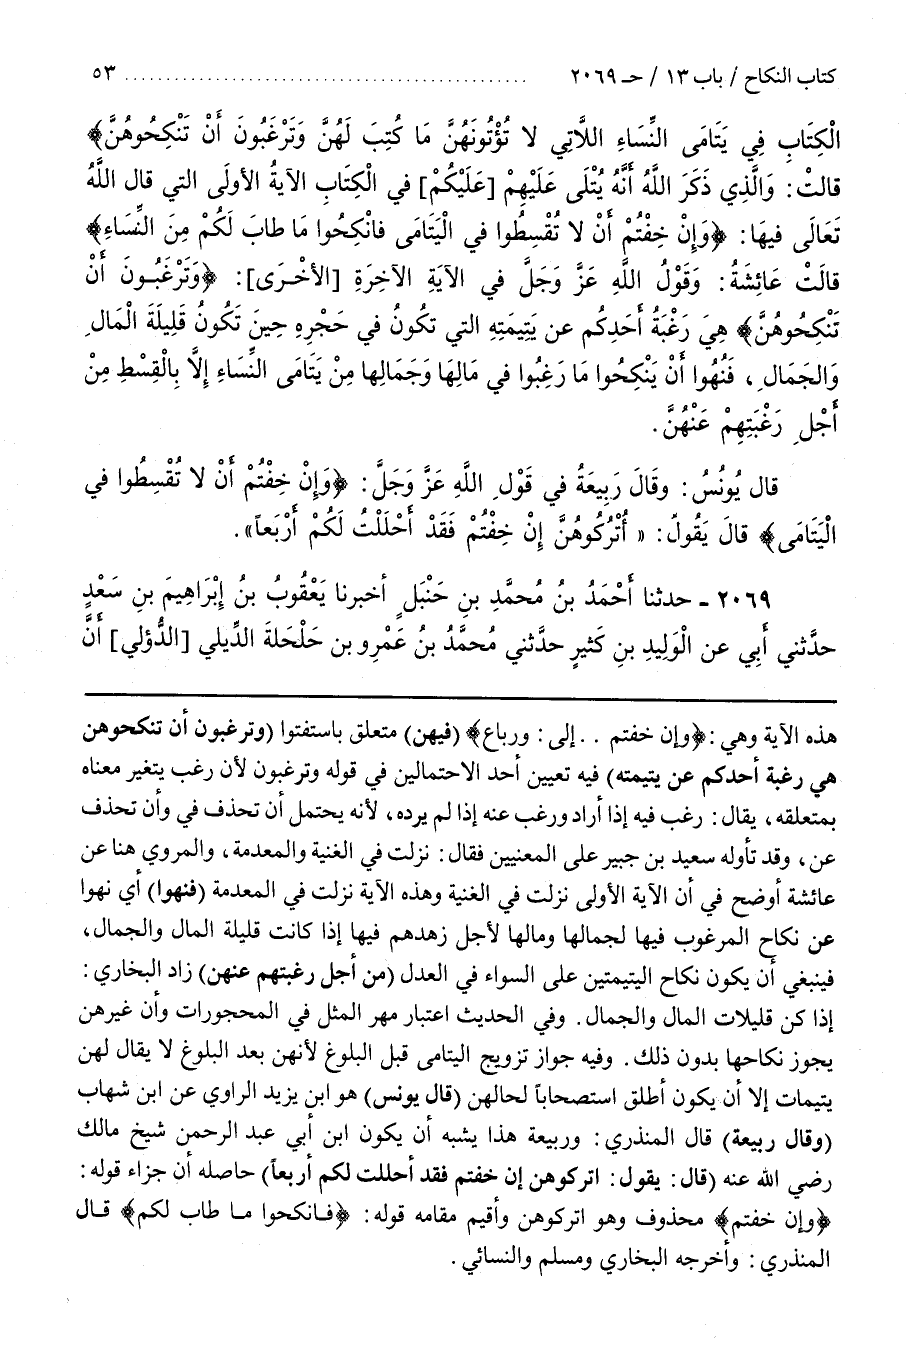 كتاب النكاح / باب ١٣ / حـ ٢٠٦٩ ................................................ ٥٣
الْكِتَابِ فِي يَتَامَى النِّسَاءِ اللَّاتِي لا تُؤْتُونَهُنَّ مَا كُتِبَ لَهُنَّ وَتَرْغَبُونَ أَنْ تَنْكِحُوهُنَّ﴾
قالتْ: وَالَّذِي ذَكَرَ اللَّهُ أَنَّهُ يُتْلَى عَلَيْهِمْ [عَلَيْكُمْ] في الْكِتَابِ الآيَةُ الأولَى التي قال اللَّهُ
تَعَالَى فيهَا: ﴿وَإِنْ خِفْتُمْ أَنْ لا تُقْسِطُوا في الْيَتَامَى فانْكِحُوا مَا طابَ لَكُمْ مِنَ النِّسَاءِ﴾
قالَتْ عَائِشَةُ: وَقَوْلُ اللَّهِ عَزَّ وَجَلَّ في الآيَةِ الآخِرَةِ [الأخْرَى]: ﴿وَتَرْغَبُونَ أَنْ
تَنْكِحُوهُنَّ﴾ هِيَ رَغْبَةُ أَحَدِكُم عن يَتِيمَتِهِ التي تكُونُ في حَجْرِهِ حِينَ تَكُونُ قَلِيلَةَ الْمَالِ
وَالجَمَالِ، فَنُهُوا أَنْ يَنْكِحُوا مَا رَغِبُوا في مَالِهَا وَجَمَالِها مِنْ يَتَامَى النِّسَاءِ إلَّا بِالْقِسْطِ مِنْ
أَجْلِ رَغْبَتِهِمْ عَنْهُنَّ.
قال يُونُسُ: وقَالَ رَبِيعَةُ في قَوْلِ اللَّهِ عَزَّ وَجَلَّ: ﴿وَإِنْ خِفْتُمْ أَنْ لا تُقْسِطُوا في
الْيَتَامَى﴾ قالَ يَقُولُ: « أُتْرُكُوهُنَّ إِنْ خِفْتُمْ فَقَدْ أَحْلَلْتُ لَكُمْ أَرْبَعاً».
٢٠٦٩ ـ حدثنا أَحْمَدُ بنُ مُحمَّدِ بنِ حَنْبَلٍ أخبرنا يَعْقُوبُ بنُ إِبْرَاهِيمَ بنِ سَعْدٍ
حدَّثني أَبِي عن الْوَلِيدِ بنِ كَثيرٍ حدَّثني مُحمَّدُ بنُ عَمْرِو بن حَلْحَلةَ الدِّيلي [الدُّؤلي] أَنَّ
هذه الآية وهي: ﴿وإن خفتم . . إلى: ورباع﴾ (فيهن) متعلق باستفتوا (وترغبون أن تنكحوهن
هي رغبة أحدكم عن يتيمته) فيه تعيين أحد الاحتمالين في قوله وترغبون لأن رغب يتغير معناه
بمتعلقه، يقال: رغب فيه إذا أراد ورغب عنه إذا لم يرده، لأنه يحتمل أن تحذف في وأن تحذف
عن، وقد تأوله سعيد بن جبير على المعنيين فقال: نزلت في الغنية والمعدمة، والمروي هنا عن
عائشة أوضح في أن الآية الأولى نزلت في الغنية وهذه الآية نزلت في المعدمة (فنهوا) أي نهوا
عن نكاح المرغوب فيها لجمالها ومالها لأجل زهدهم فيها إذا كانت قليلة المال والجمال،
فينبغي أن يكون نكاح اليتيمتين على السواء في العدل (من أجل رغبتهم عنهن) زاد البخاري:
إذا كن قليلات المال والجمال. وفي الحديث اعتبار مهر المثل في المحجورات وأن غيرهن
يجوز نكاحها بدون ذلك. وفيه جواز تزويج اليتامى قبل البلوغ لأنهن بعد البلوغ لا يقال لهن
يتيمات إلا أن يكون أطلق استصحاباً لحالهن (قال يونس) هو ابن يزيد الراوي عن ابن شهاب
(وقال ربيعة) قال المنذري: وربيعة هذا يشبه أن يكون ابن أبي عبد الرحمن شيخ مالك
رضي الله عنه (قال: يقول: اتركوهن إن خفتم فقد أحللت لكم أربعاً) حاصله أن جزاء قوله:
﴿وإن خفتم﴾ محذوف وهو اتركوهن وأقيم مقامه قوله: ﴿فانكحوا ما طاب لكم﴾ قال
المنذري: وأخرجه البخاري ومسلم والنسائي.